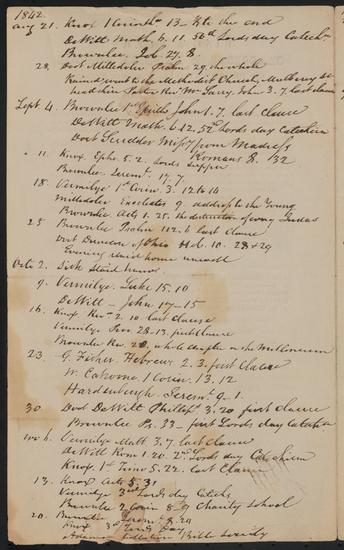 1842.
Aug 21. Knox 1 Corinth. 13. 8 to the end
DeWitt Math. 6. 11. 50th Lords day Catechm
Brownlee. Job 27. 8.
28. Doct Milldoler Psalm 29. the whole
Rained went to the Methodist Church, Mulberry st
heard their Pastor Rev Mr John 3. 7. last clause
Sept 4. Brownlee 1st John 1. 7. last clause
DeWitt Math. 6. 12. 52d Lords day Catechism
Doct Scudder Missy from Madrass
Romans 8. 132
11. Knox Ephs. 5. 2. Lords Supper
Brownlee. Jeremh. 17. 7
18. Vermilye 1st Corin. 3. 12 to 14
Milldoler Eccelates 9. address to the Young
Brownlee Acts 1. 25. the destruction of Judas
25. Brownlee Psalm 112. 6 last clause
Doct Duncan of Ohio Heb. 10. 28 & 29
Evening staid home unwell
Octo 2. Sick Staid home
9. Vermilye. Luke 15. 10
DeWitt - John 17-15
16. Knox Revn. 2. 10. last clause
Vermilye Prov. 28. 13. first clause
Brownlee Rev 20. whole chapter on the Millenium
23. G. Fisher Hebrews 2. 3. first Clause
W. Calvome 1 Corin. 13. 12
Hardenburgh. Jeremh. 9 - 1.
30. Doct DeWitt Phillips 3. 20 first clause
Brownlee Ps. 33 - first Lords day Catechism
Nov 6. Vermilye Matt 3. 7. last Clause
DeWitt Rom 1. 20. 2d Lords day Catechism
Knox. 1st Timo 5. 22. last Clause
13. Knox Acts 5. 31
Vermilye 3rd Lords day Catech
Brownlee 2 Corin 8 - 9 Charity School
20. Jeremh 8. 20
Knox 3 Lords Day
Adams Collection Bible Society